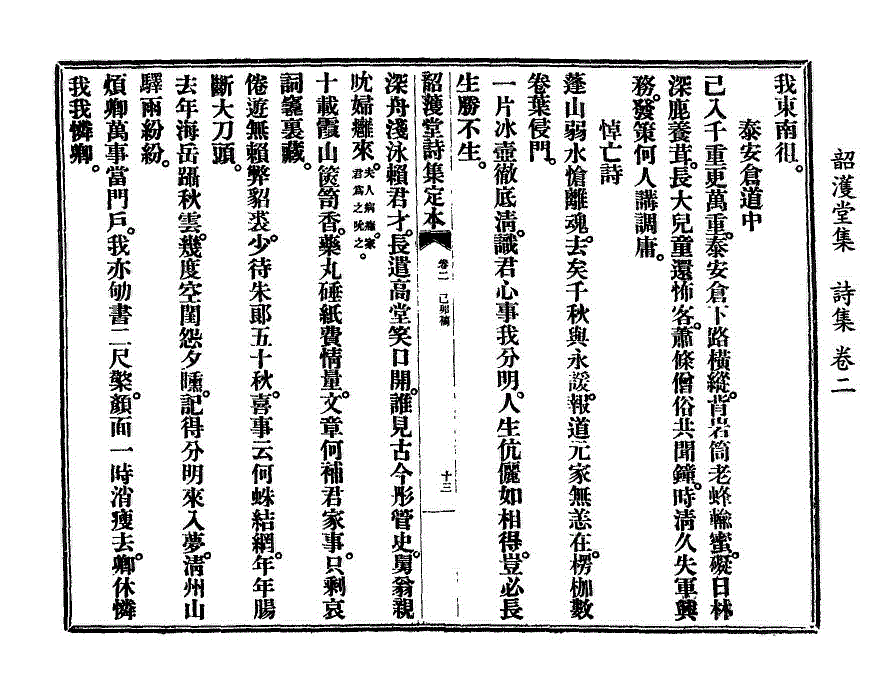 韶濩堂集　詩集　卷二
我東南徂。
泰安倉道中
已入千重更萬重。泰安倉下路橫縱。背岩筒老蜂輸蜜。礙日林
深鹿養茸。長大兒童還怖客。蕭條僧俗共聞鐘。時淸久失軍興
務。發策何人講調庸。
悼亡詩
蓬山弱水愴離魂。去矣千秋與永諼。報道元家無恙在。楞枷數
卷葉侵門。
一片冰壺徹底淸。識君心事我分明。人生伉儷如相得。豈必長
生勝不生。
韶濩堂詩集定本　卷二　己卯稿　十三
深舟淺泳賴君才。長遣高堂笑口開。誰見古今彤管史。舅翁親
吮婦癰來。夫人病癰家君爲之吮之。
十載霞山篋笥香。藥丸硾紙費情量。文章何補君家事。只剩哀
詞龕裏藏。
倦遊無賴弊貂裘。少待朱郞五十秋。喜事云何蛛結網。年年腸
斷大刀頭。
去年海岳躡秋雲。幾度空閨怨夕曛。記得分明來入夢。淸州山
驛雨紛紛。
煩卿萬事當門戶。我亦劬書二尺檠。顏面一時消瘦去。卿休憐
我我憐卿。